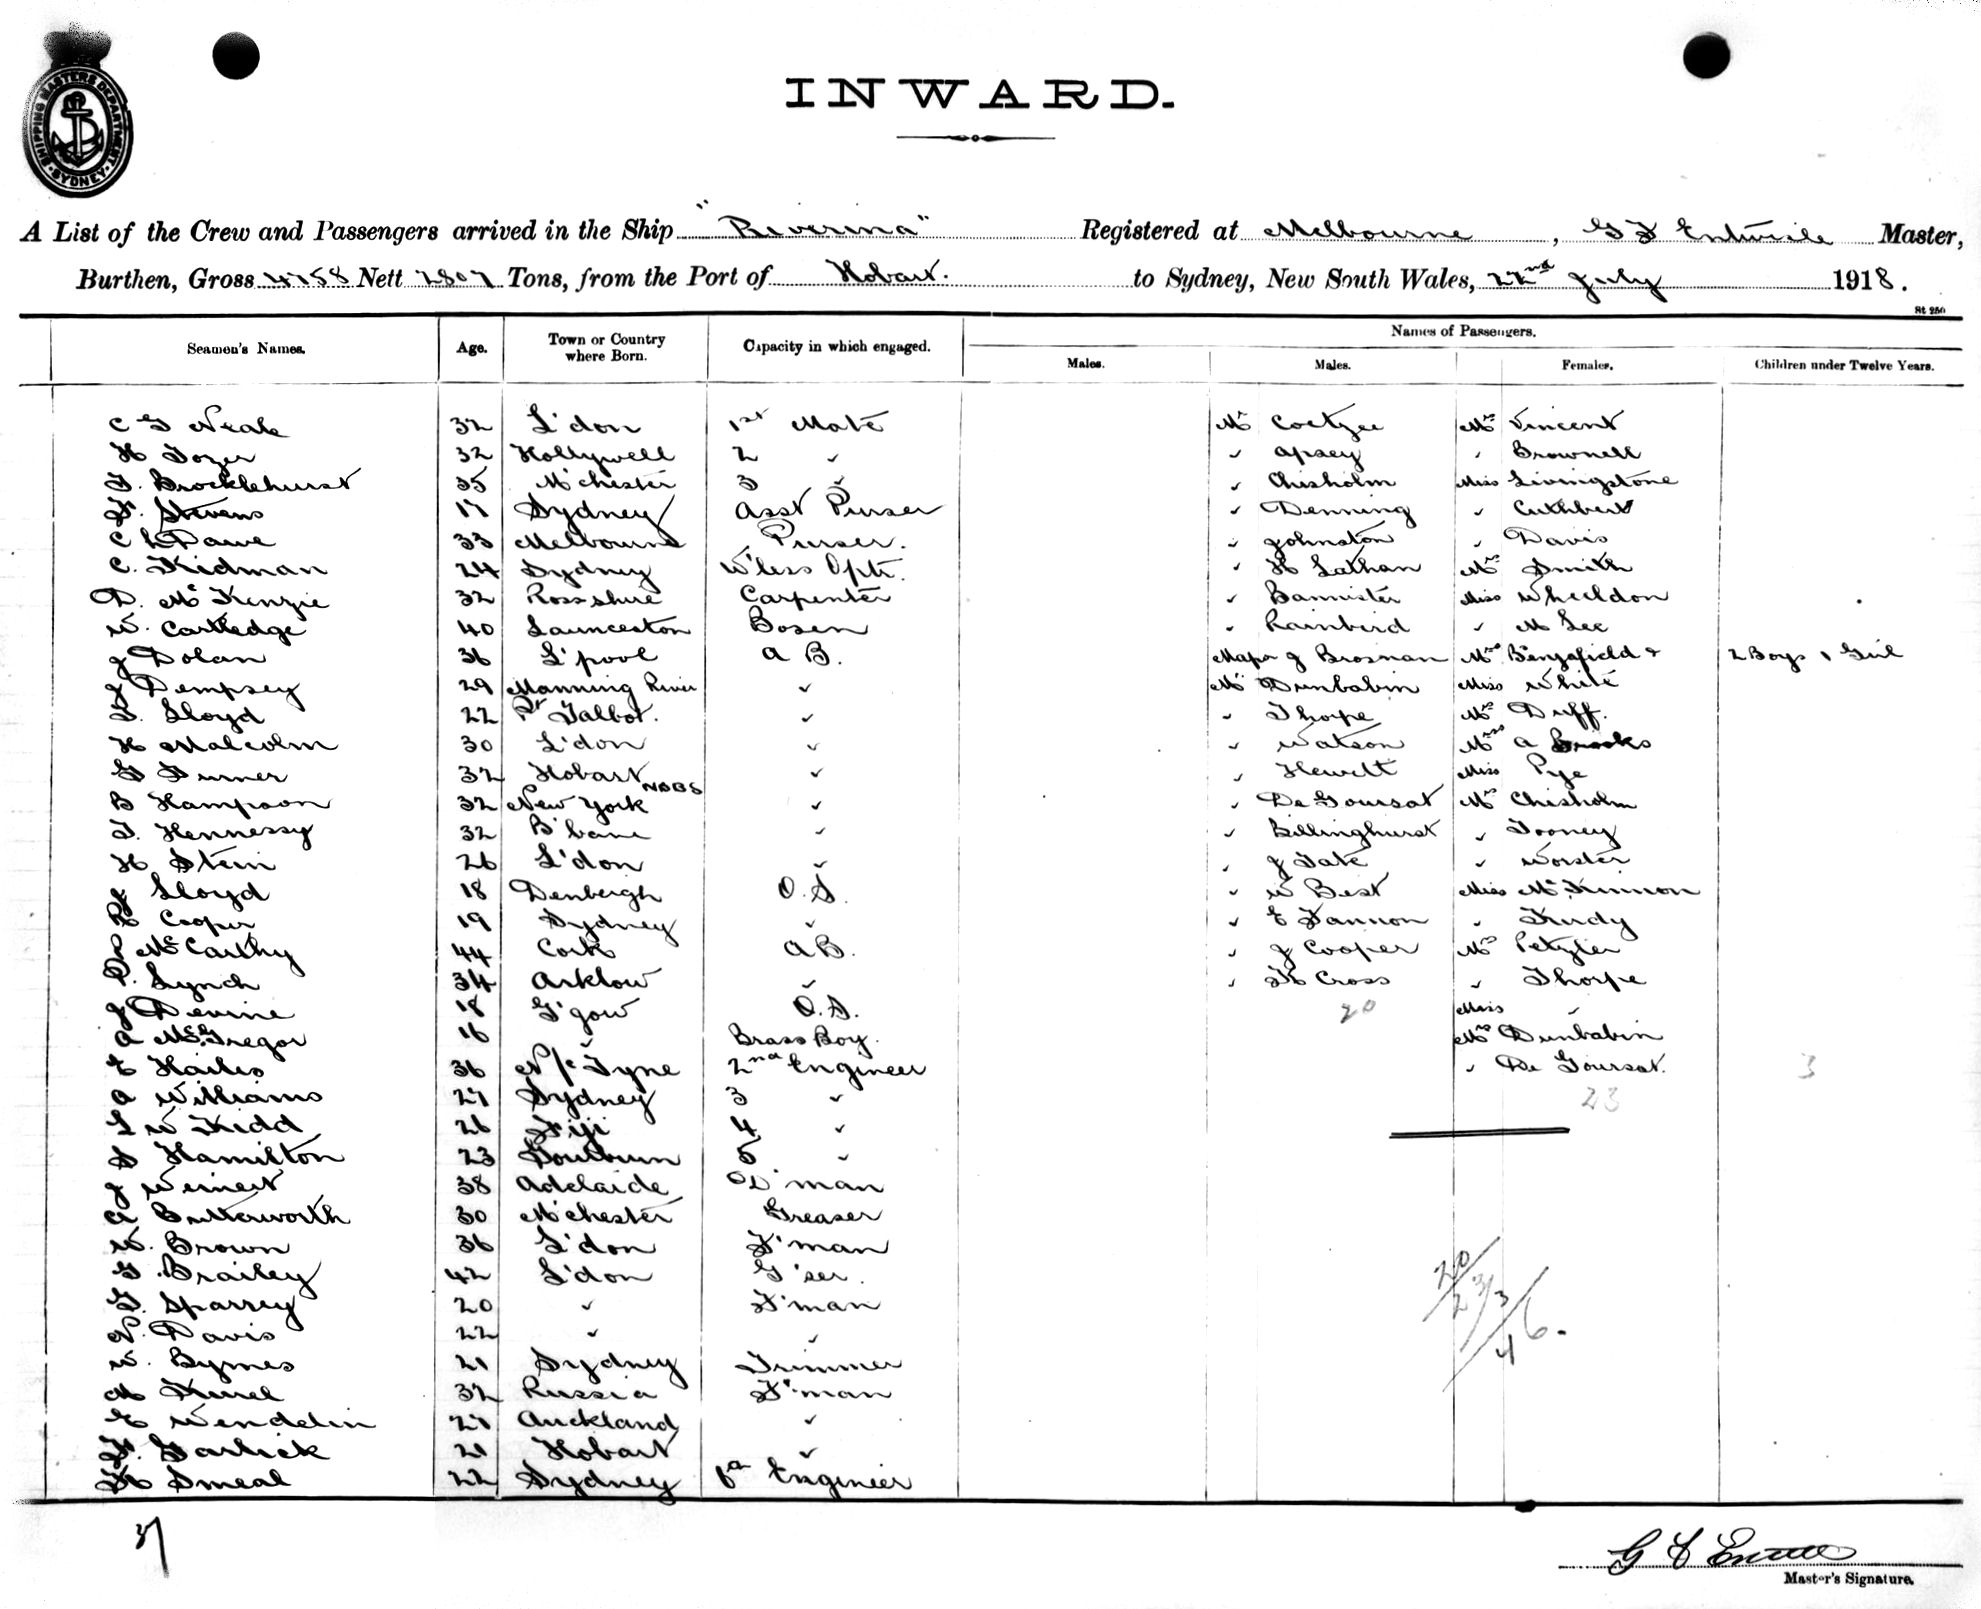 SHIPPING MASTERS DEPARTMENT
SYDNEY
INWARD.
A List of the Crew and Passengers arrived in the Ship "Riverina" Registered at Melbourne, G F Entwisle Master,
Burthen, Gross 4758 Nett 2807 Tons, from the Port of Hobart. to Sydney, New South Wales, 22nd July 1918.
St 250
Names of Passengers.
Seamen's Names. Age. Town or Country where Born. Capacity in which engaged. Males. Males. Females. Children under Twelve Years.
C G Neale 32 L'don 1st Mate Mr Coetzee Mrs Vincent
H Tozer 32 Hollywell 2 " " Apsey " Brownell
T. Brocklehurst 35 M'chester 3 " " Chisholm Miss Livingstone
F. Stevens 17 Sydney Asst Purser " Denning " Cuthbert
C L Dawe 33 Melbourne Purser. " Johnston " Davis
C. Kidman 24 Sydney W'less Optr. " H Lathan Mrs Smith
D. McKenzie 32 Rossshire Carpenter " Bannister Miss Wheeldon
W. Cartledge 40 Launceston Bosen " Rainbird " M Lee
J Dolan 36 L'pool A B. Major J Brosnan Mrs Bengafield & 2 Boys 1 Girl
J Dempsey 29 Manning River " Mr Dunbabin Miss White
T. Lloyd 22 Pt Talbot. " " Thorpe Mrs Duff.
H Malcolm 30 L'don " " Watson Mrs A Brooks
G Turner 32 Hobart " " Hewitt Miss Pye
NDBS
B Hampson 32 New York " " De Goursat Mrs Chisholm
T. Hennessy 32 B'bane " " Billinghurst " Tooney
H Stein 26 L'don " " J Tate " Worster
J Lloyd 18 Denbergh O.S. " W Best Miss McKinnon
R Cooper 19 Sydney " " E Fannon " Kirdy
P McCarthy 44 Cork AB. " J Cooper Mrs Petzler
P. Lynch 34 Arklow " " H Cross " Thorpe
J Devine 18 G'gow O.S. 20 Miss "
A McGregor 16 " Brass Boy. Mrs Dunbabin
E Hailes 36 N/c Tyne 2nd Engineer " De Goursat. 3
A Williams 27 Sydney 3 " 23
L W Kidd 26 Fiji 4 "
S Hamilton 23 Goulburn 5 "
J Weinert 38 Adelaide D'man
A Butterworth 30 M'chester Greaser
W. Brown 36 L'don F'man
G. Brailey 42 L'don G'ser.
G. Sparrey 20 " F'man
N. Davis 22 " "
W. Byrnes 21 Sydney Trimmer
M Kurel 32 Russia F'man
E Wendelin 27 Auckland "
F. Garlick 21 Hobart "
H Smeal 22 Sydney 6th Engineer
20/23/3/46.
37
Master's Signature.